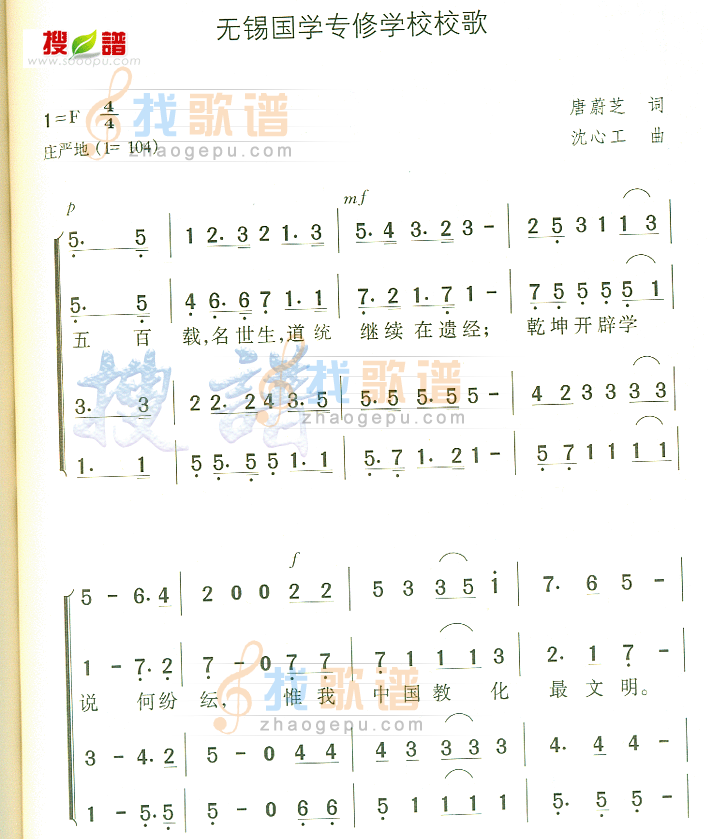 无锡国学专修学校校歌
搜譜
www.sooopu.com
找歌谱
zhaogepu.com
1=F 4/4
唐蔚芝 词
庄严地 (1= 104)
沈心工 曲
p mf
5. 5 | 1 2. 3 2 1. 3 | 5. 4 3. 2 3 - | 2 5 3 1 1 3 |
5. 5 | 4 6. 6 7 1. 1 | 7. 2 1. 7 1 - | 7 5 5 5 5 1 |
五 百 载,名世生,道统 继续在遗经; 乾坤开辟学
搜譜
找歌谱
zhaogepu.com
3. 3 | 2 2. 2 4 3. 5 | 5. 5 5. 5 5 - | 4 2 3 3 3 3 |
1. 1 | 5 5. 5 5 1. 1 | 5. 7 1. 2 1 - | 5 7 1 1 1 1 |
f
5 - 6. 4 | 2 0 0 2 2 | 5 3 3 5 i | 7. 6 5 - |
1 - 7. 2 | 7 - 0 7 7 | 7 1 1 1 3 | 2. 1 7 - |
说 何纷 纭, 惟我 中国教 化 最文明。
找歌谱
zhaogepu.com
3 - 4. 2 | 5 - 0 4 4 | 4 3 3 3 3 | 4. 4 4 - |
1 - 5. 5 | 5 - 0 6 6 | 5 1 1 1 1 | 5. 5 5 - |